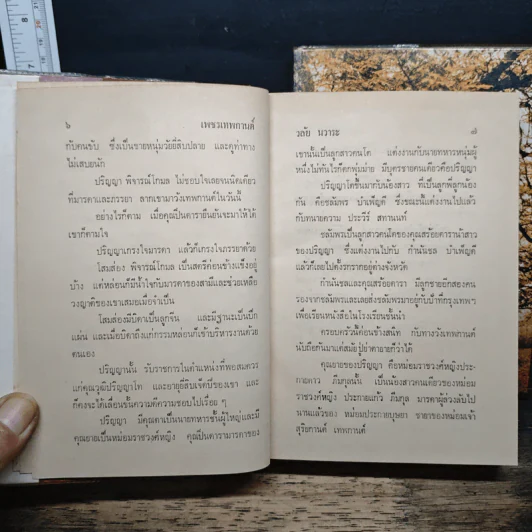 ๖ เพชรเทพกานต์
กับคนขับ ซึ่งเป็นชายหนุ่มวัยยี่สิบปลาย และดูท่าทาง
ไม่เสบยนัก
ปริญญา พิจารณ์โกมล ไม่ชอบใจเลยจนนิดเดียว
ที่มารดาและภรรยา ลากเขามาวังเทพกานต์ในวันนี้
อย่างไรก็ตาม เมื่อคุณป็นดารายืนยันจะมาให้ได้
เขาก็ตามใจ
ปริญญาเกรงใจมารดา แล้วก็เกรงใจภรรยาด้วย
โสมส่อง พิจารณ์โกมล เป็นสตรีค่อนข้างแข็งอยู่
บ้าง แต่หล่อนก็มีน้ำใจกับมารดาของสามีและช่วยเหลือ
วงญาติของเขาเสมอเมื่อจำเป็น
โสมส่องมีบิดาเป็นลูกจีน และมีฐานะเป็นปึก
แผ่น และเมื่อบิดาถึงแก่กรรมหล่อนก็เข้าบริหารงานด้วย
ตนเอง
ปริญญานั้น รับราชการในตำแหน่งที่พอสมควร
แก่คุณวุฒิปริญญาโท และอายุยี่สิบเจ็ดปีของเขา และ
ก็คงจะได้เลื่อนขั้นความดีความชอบไปเรื่อย ๆ
ปริญญา มีคุณตาเป็นนายทหารชั้นผู้ใหญ่และมี
คุณยายเป็นหม่อมราชวงศ์หญิง คุณป็นดารามารดาของ
วลัย นวาระ ๗
เขานั้นเป็นลูกสาวคนโต แต่งงานกับนายทหารหนุ่มผู้
หนึ่งไม่ทันไรก็ตกพุ่มม่าย มีบุตรชายคนเดียวคือปริญญา
ปริญญาโตขึ้นมากับน้องสาว ที่เป็นลูกพี่ลูกน้อง
กัน คือชลัมพร บำเพ็ญดี ซึ่งขณะนั้นแต่งงานไปแล้ว
กับทนายความ ประวีร์ สทานนท์
ชลัมพรเป็นลูกสาวคนโตของคุณสร้อยดาราน้าสาว
ของปริญญา ซึ่งแต่งงานไปกับ กำนันชล บำเพ็ญดี
แล้วก็เลยไปตั้งรกรากอยู่ต่างจังหวัด
กำนันชลและคุณสร้อยดารา มีลูกชายอีกสองคน
รองจากชลัมพรและเลยส่งชลัมพรมาอยู่กับป้าที่กรุงเทพฯ
เพื่อเรียนหนังสือในโรงเรียนชั้นนำ
ครอบครัวนี้ค่อนข้างสนิท กับทางวังเทพกานต์
นับถือกันมาแต่สมัยปู่ย่าตายายก็ว่าได้
คุณยายของปริญญา คือหม่อมราชวงศ์หญิงประ-
กายดาว ภีมกุลนั้น เป็นน้องสาวคนเดียวของหม่อม
ราชวงศ์หญิง ประกายแก้ว ภีมกุล มารดาผู้ล่วงลับไป
นานแล้วของ หม่อมประกายบุษยา ชายาของหม่อมเจ้า
สุริยกานต์ เทพกานต์